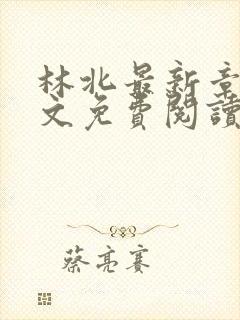 林北最新章
文免費閱讀
蔡亮賽